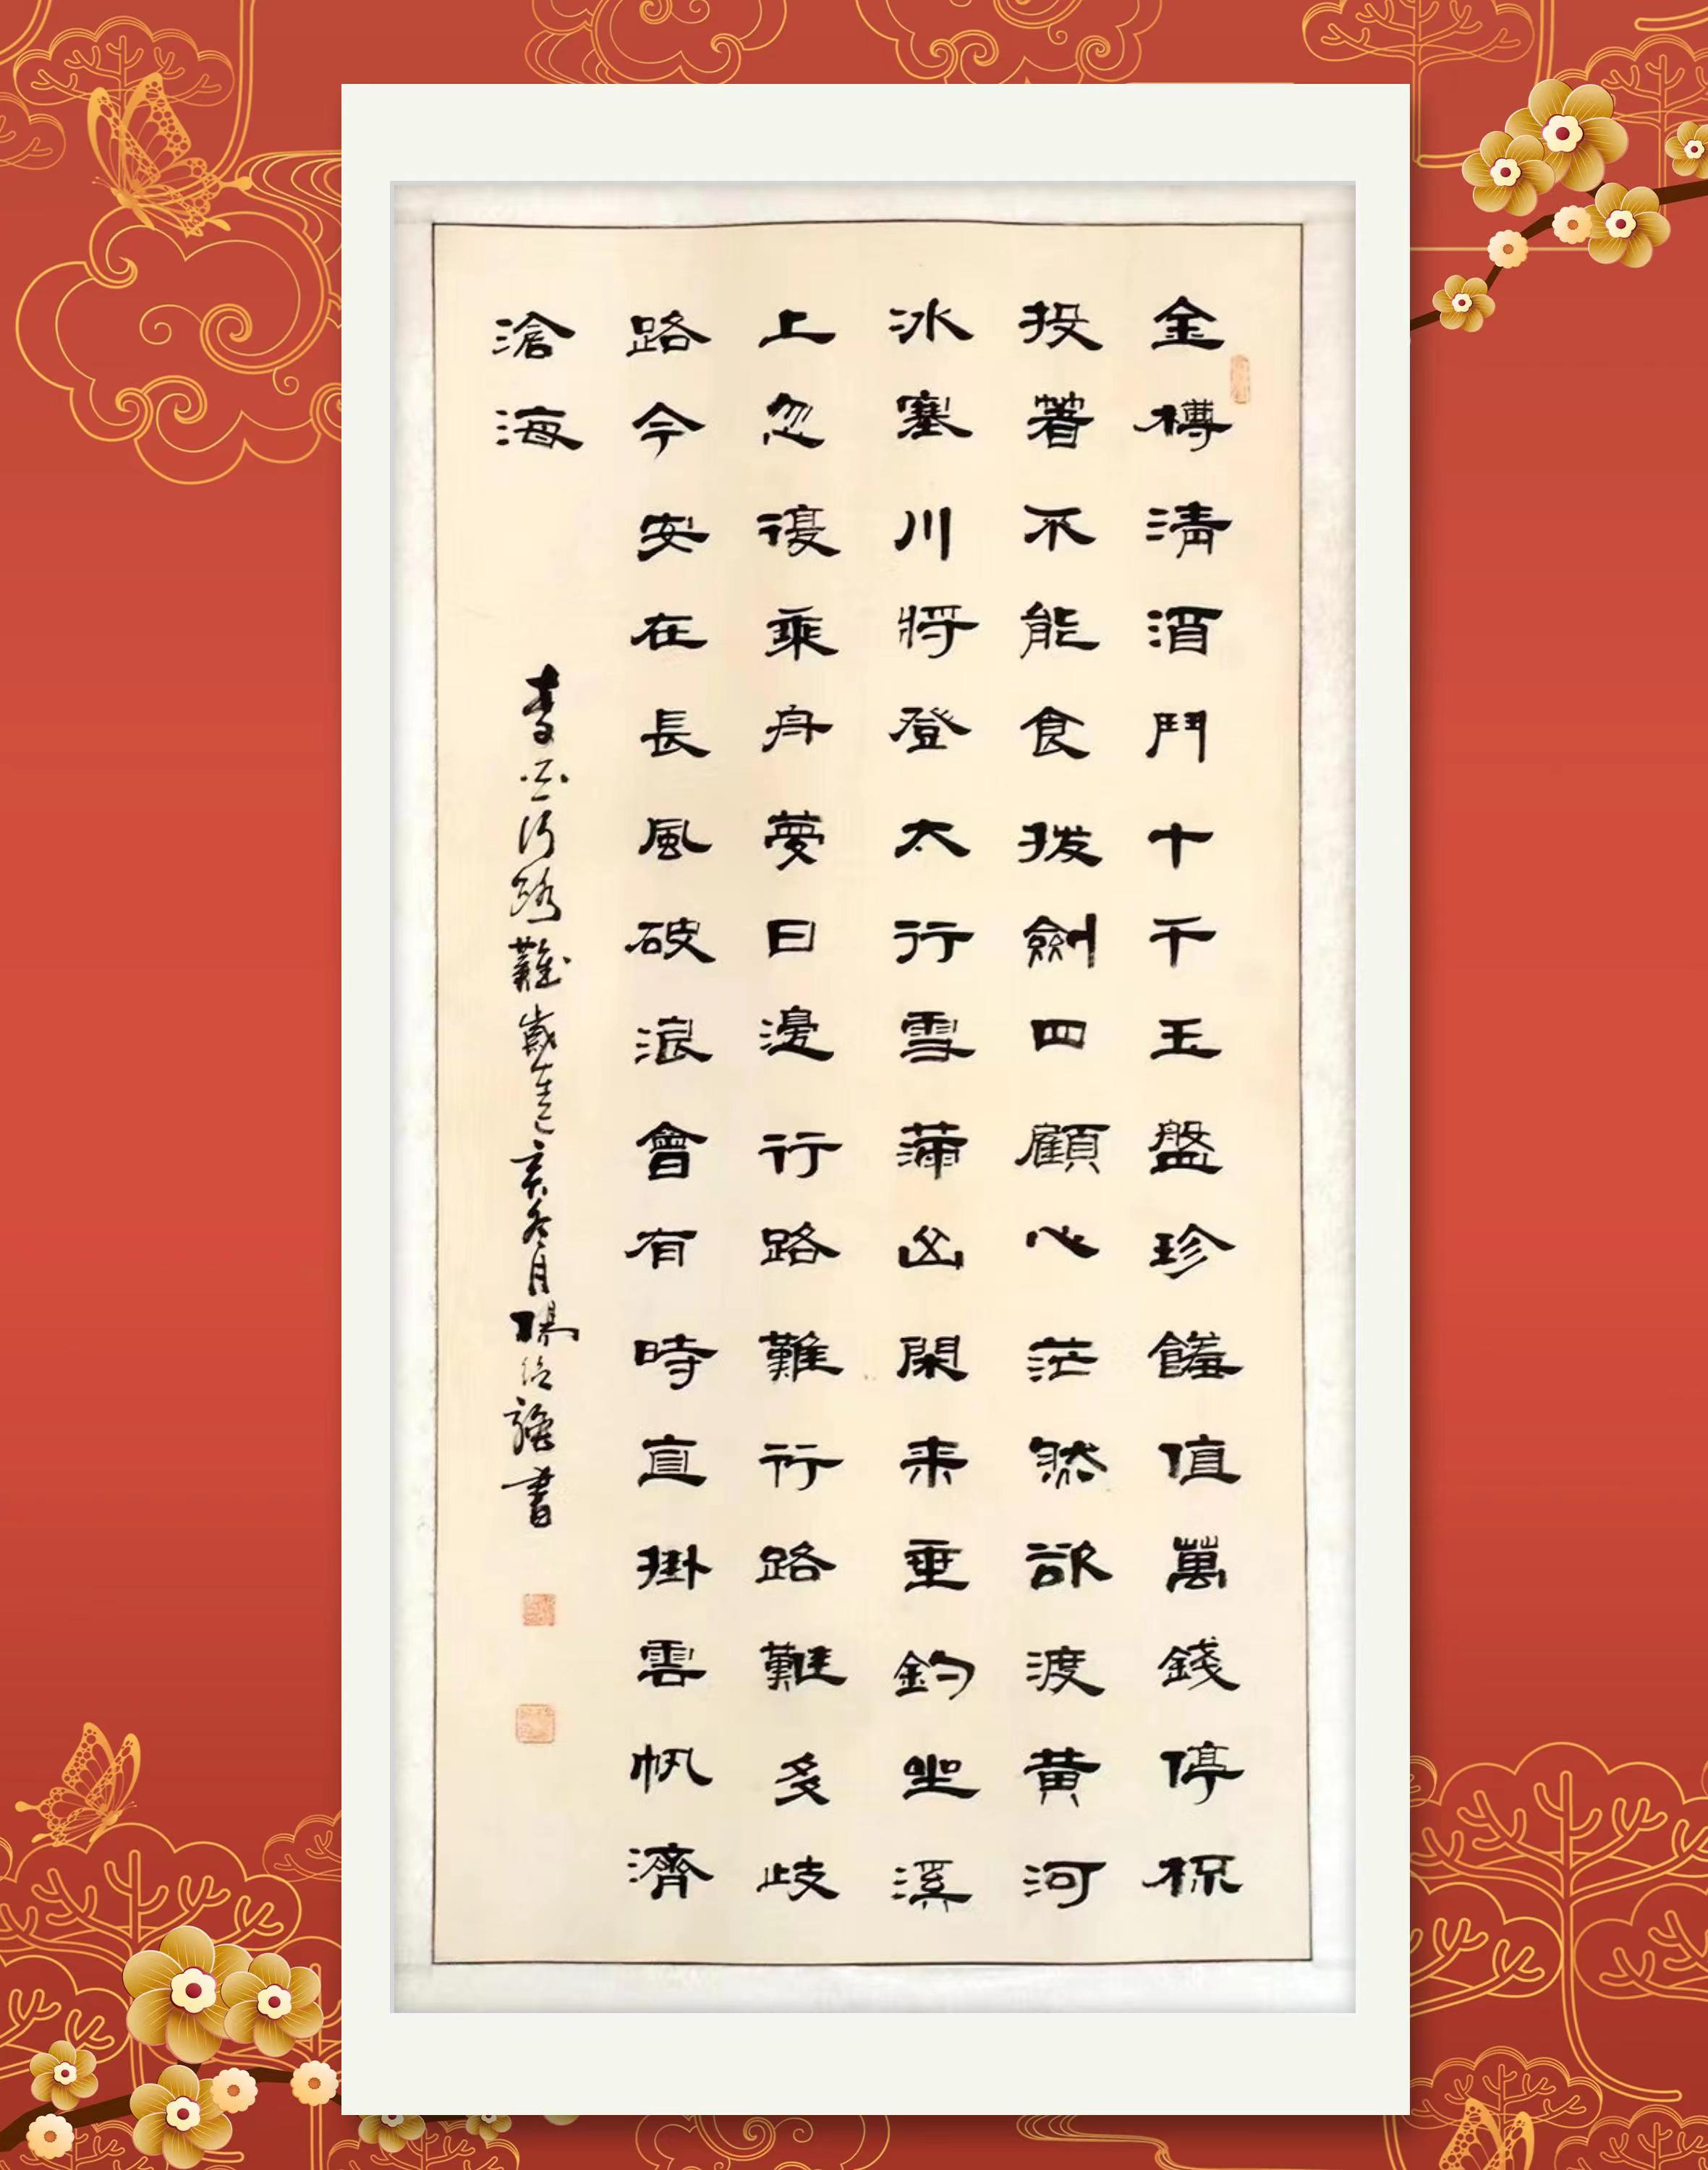 金樽清酒鬥十千玉盤珍饈值萬錢停杯
投箸不能食拔劍四顧心茫然欲渡黃河
冰塞川將登太行雪滿山閑来垂釣坐溪
上忽復乘舟夢日邊行路難行路難多歧
路今安在長風破浪會有時直掛雲帆濟
滄海
李白行路難歲在己亥冬月楊書